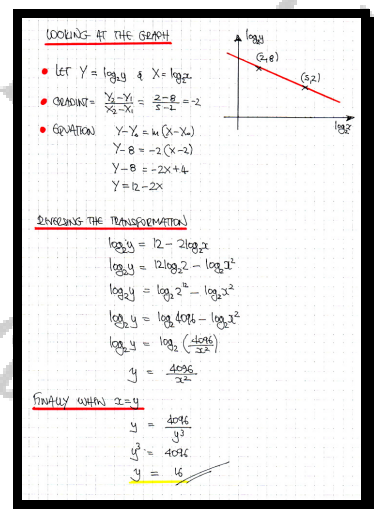 LOOKING AT THE GRAPH
log₂y
(2,8)
(5,2)
log₂x
• LET Y = log₂y & X = log₂x
• GRADIENT = Y₂-Y₁/X₂-X₁ = 2-8/5-2 = -2
• EQUATION Y-Y₀ = m(X-X₀)
Y-8 = -2(X-2)
Y-8 = -2X+4
Y = 12-2X
REVERSING THE TRANSFORMATION
log₂y = 12 - 2log₂x
log₂y = 12log₂2 - log₂x²
log₂y = log₂2¹² - log₂x²
log₂y = log₂4096 - log₂x²
log₂y = log₂(4096/x²)
y = 4096/x²
FINALLY WHEN x=y
y = 4096/y³
y³ = 4096
y = 16